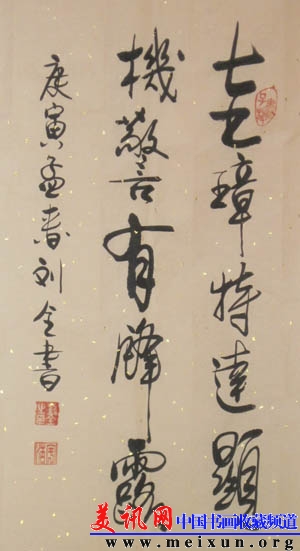 圭璋特達顯
機警有鋒露
庚寅孟春刘金書
美讯网 中国书画收藏频道
www.meixun.org